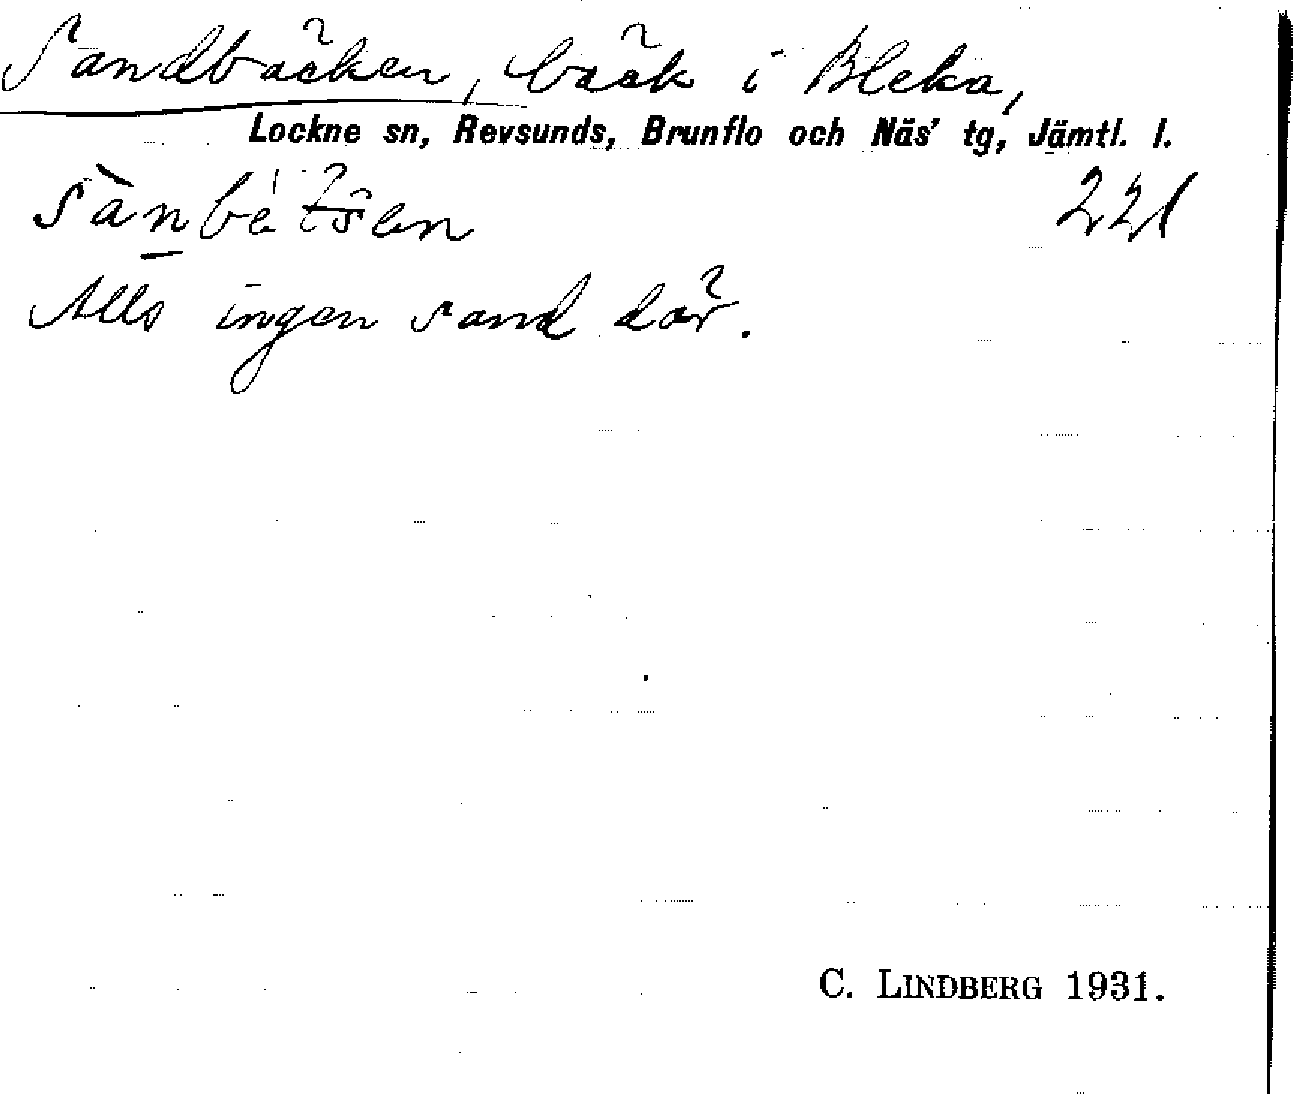 Sandbäcken, bäck i Bleka,
Lockne sn, Revsunds, Brunflo och Näs' tg, Jämtl. l.
221
Alls ingen sand där.
C. LINDBERG 1931.